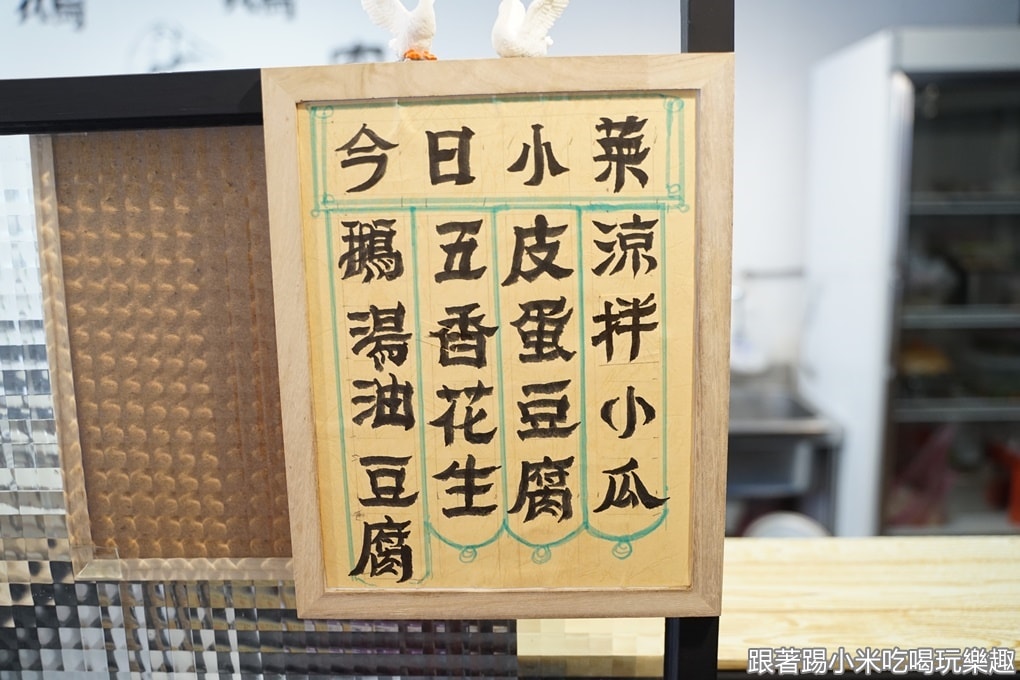 今日小菜
涼拌小瓜
皮蛋豆腐
五香花生
鵝湯油豆腐
跟著踢小米吃喝玩樂趣